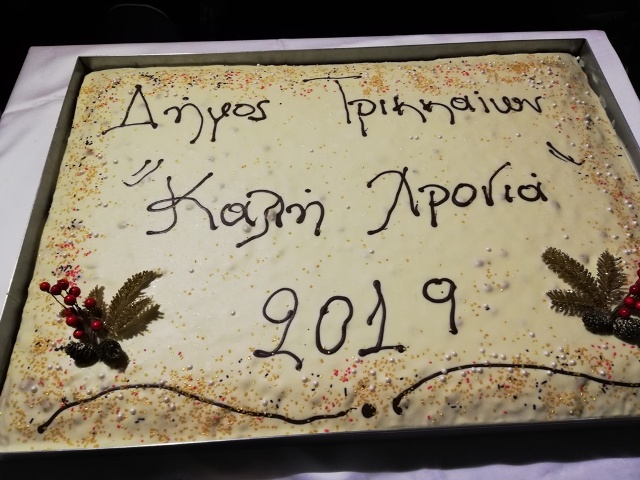 Δήμος Τρικκαίων
"Καλή Χρονιά"
2019